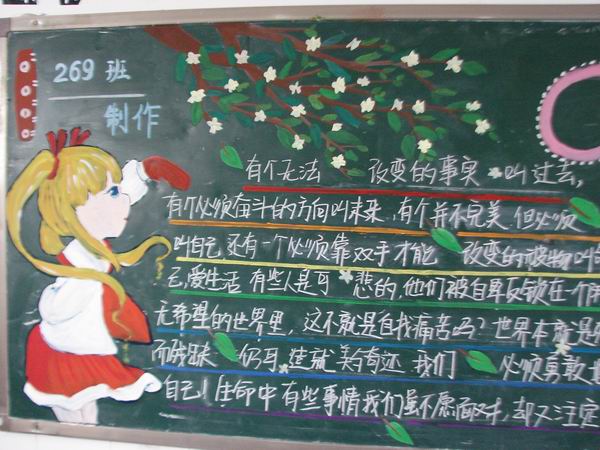 269班
制作
有个无法 改变的事实 叫过去,
有个必须奋斗的方向叫未来,有个并不完美 但必须
叫自己 还有一个必须靠双手才能 改变的 叫
己,爱生活 有些人是可 悲的,他们被自卑反锁在个
无希望的世界里,这不就是自我痛苦吗?世界本就是
而残缺 仍可造就美 有还 我们 必须勇敢
自己!生命中有些事情我们虽不愿面对,却又注定